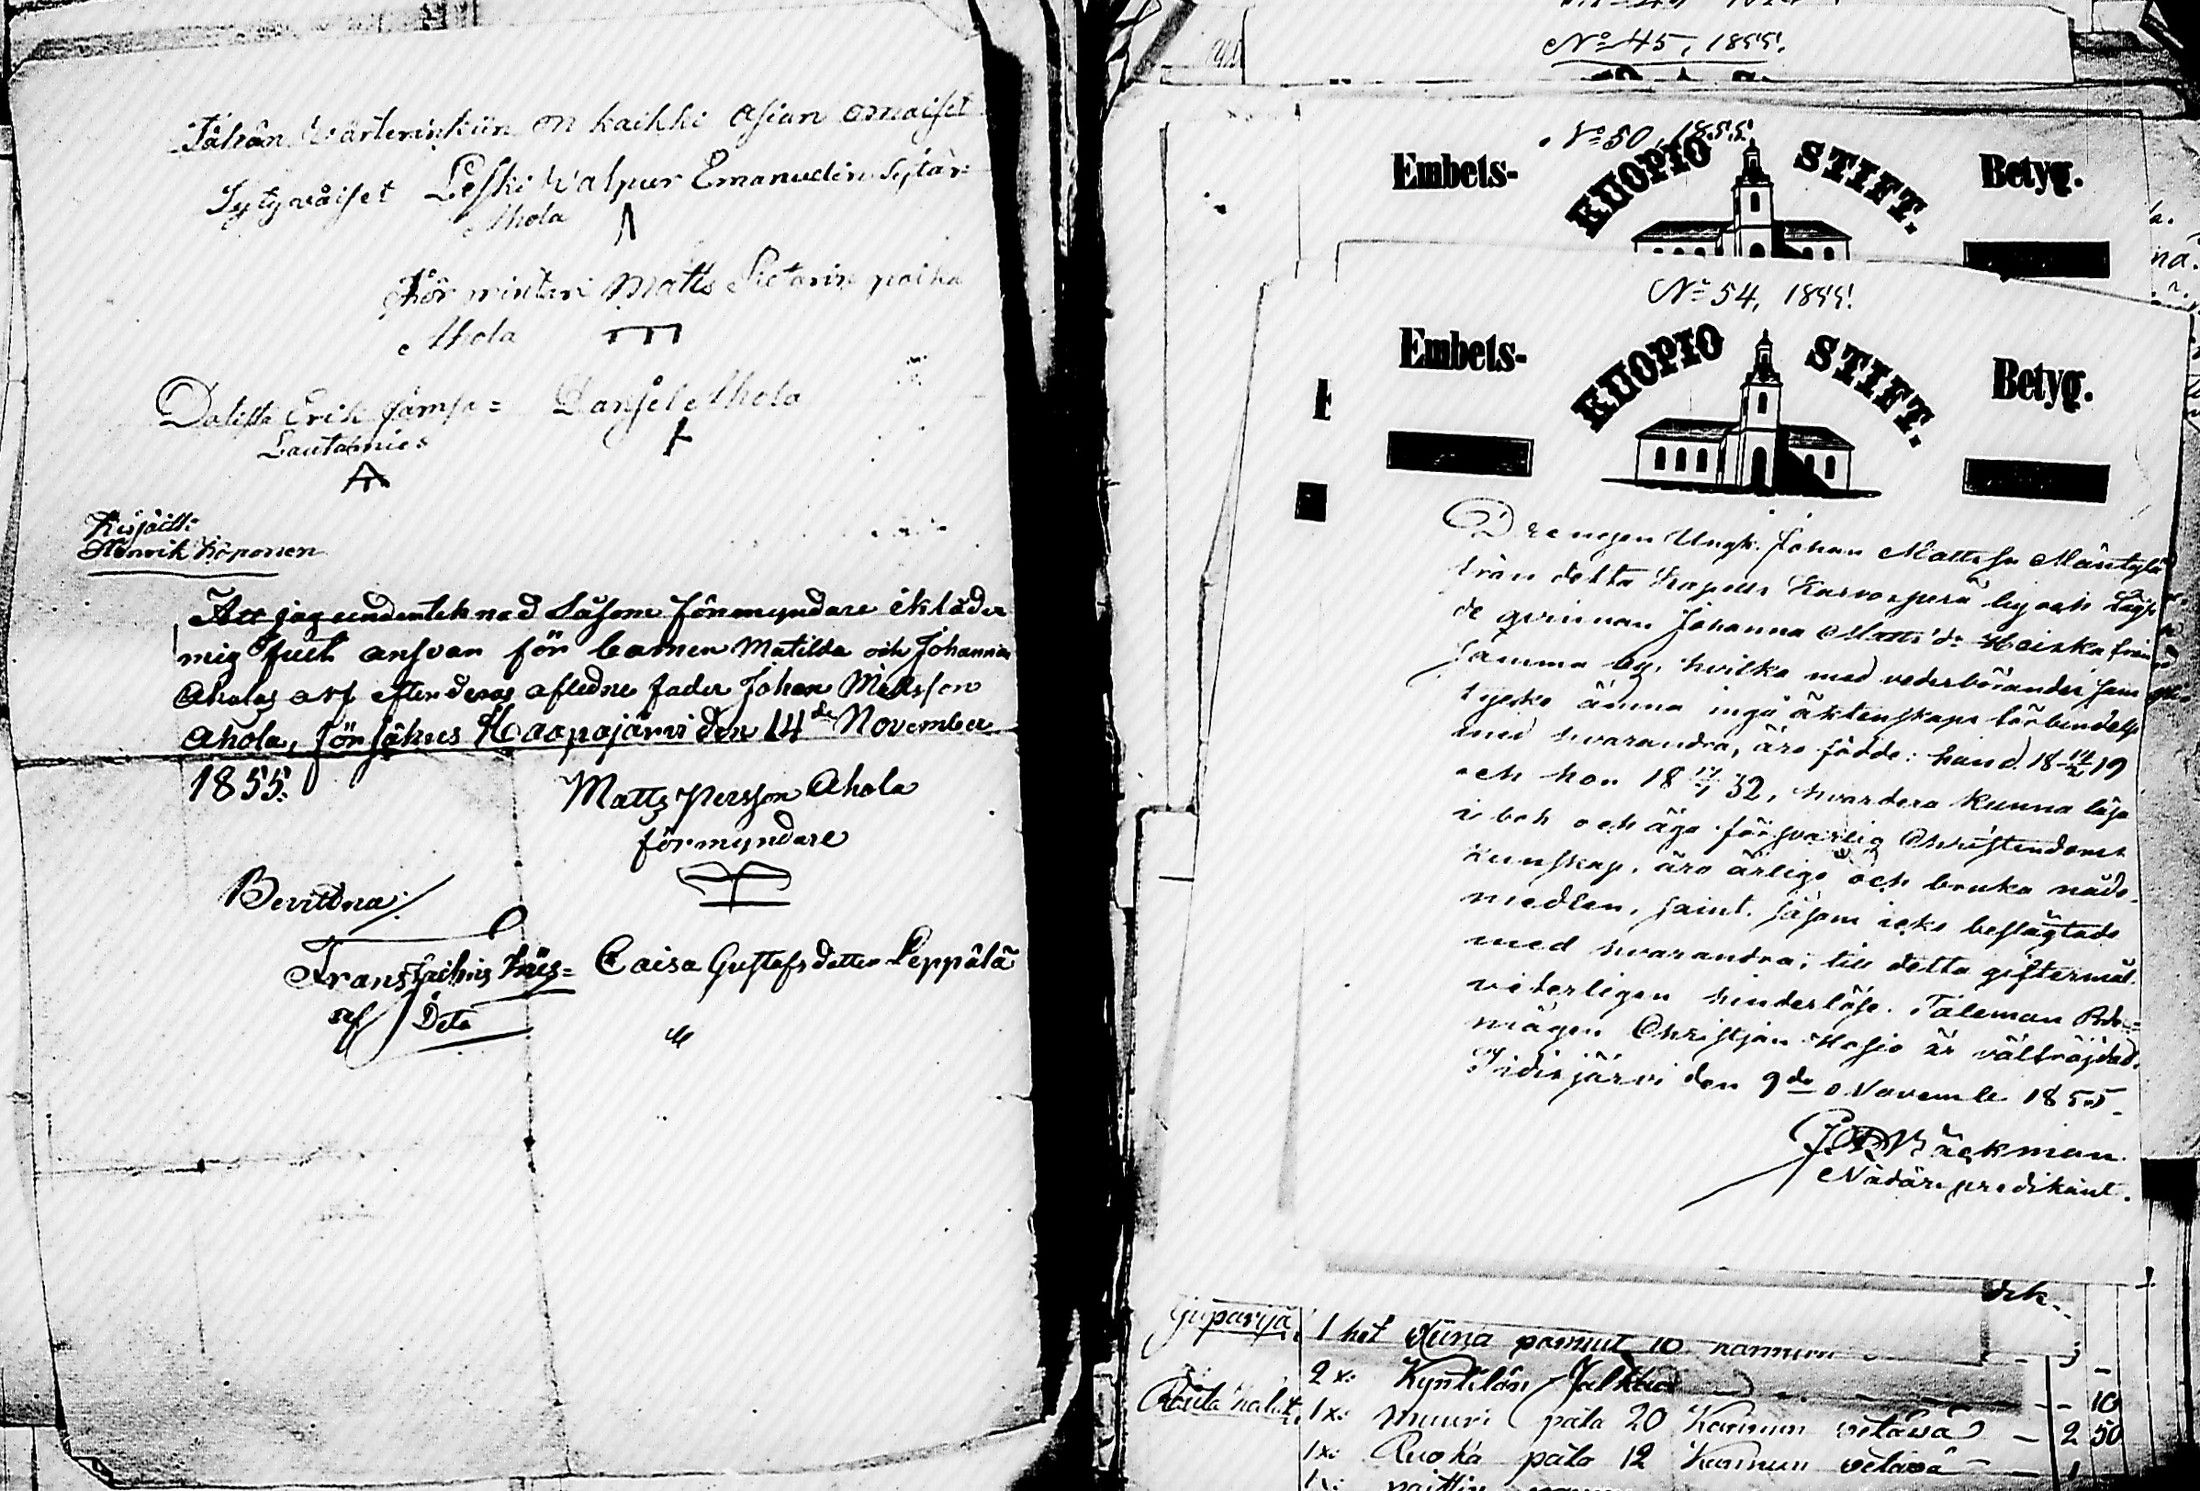 Tähän Wärterinkiin on kaikki asian omaiset
Tytyväiset Leski Walpur Emanuelin tytär
Ahola
För mintari Matts Pietarin poika
Ahola
Dalista Erik Jämsä= Danjel Ahola
Lautamies
Kirjoitti
Henrik Koponen
Att jag underteknad såsom förmyndare ikläder
mig fult ansvar för barnen Matilda och Johannes
Aholas arf efter deras aflédne fader Johan Mattsson
Ahola, försäkras Haapajärvi den 14de November
1855.
Matts Persson Ahola
förmyndare
Bevittna
Frans Caisa Gustafsdotter Leppälä
af Dito
No 45, 1855.
No 50, 1855.
Embets- KUOPIO STIFT. Betyg.
No 54, 1855.
Embets- KUOPIO STIFT. Betyg.
Drengen Ungk. Johan Mattsson Mäntylä
från detta kapells Karvoskylä by och
de qvinnan Johanna Matts dr Haiska från
samma by, hvilka med vederbörandes sam
tycke ämna ingå äktenskaps förbindelse
med hvarandra, äro födde: han d. 18 19
och hon 18 32, hvardera kunna läsa
i bok och äga försvarlig Christendoms
kunskap, äro ärlige och bruka nåde-
medlen, samt, såsom icke beslägtade
med hvarandra, till detta giftermål
veterligen hinderlöse. Taleman Bonde-
mågen Christjan Hasio är välfräjdad.
Pidisjärvi den 9de November 1855.
Bäckman
Nådårspredikant.
1 het Wiina pannut 10 kannun
2 x: Kyntilän Jalkaa 10
Rauta kalut 1 x: muuri pata 20 Kannun vetävä 2 50
1 x: Ruoka pata 12 Kannun vetävä 1